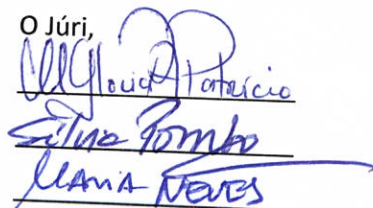 O Júri,
MGlória Patrício
Sílvia Pombo
Maria Neves